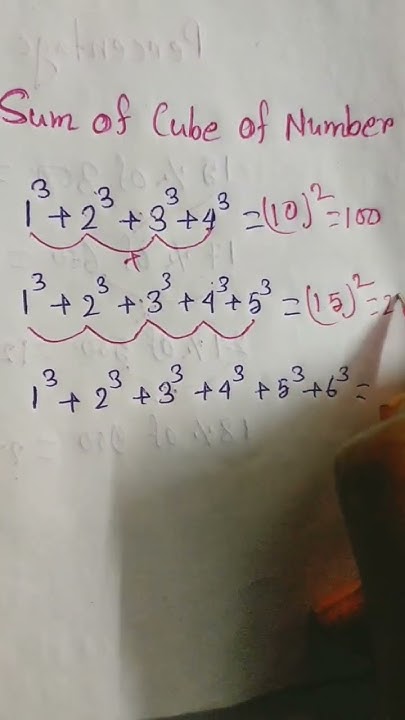 Sum of Cube of Number
1³ + 2³ + 3³ + 4³ = (10)² = 100
+
1³ + 2³ + 3³ + 4³ + 5³ = (15)² = 2
1³ + 2³ + 3³ + 4³ + 5³ + 6³ =